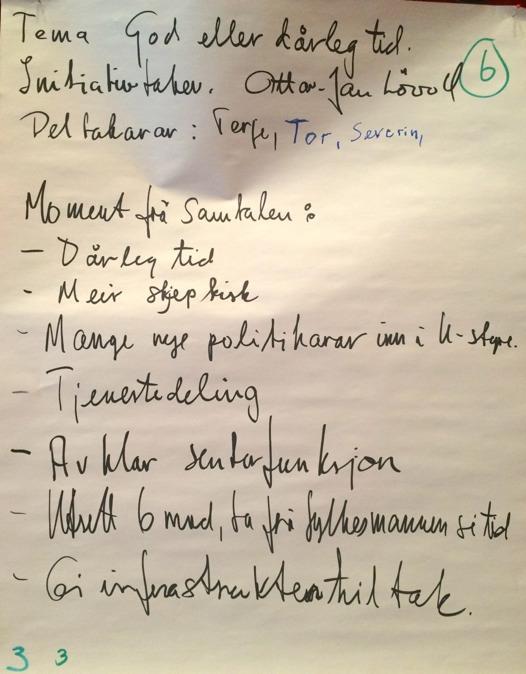 Tema God eller dårleg tid.
Initiativtaker. Ottar-Jan Løvoll
6
Deltakarar: Terje, Tor, Severin,
Moment frå Samtalen:
- Dårleg tid
- Meir skjeptisk
- Mange nye politikarar inn i K-styre.
- Tjenestedeling
- Avklar senterfunksjon
- Utsett 6 mnd, ta frå fylkesmannen si tid
- Gi infrastruktur tiltak.
3 3